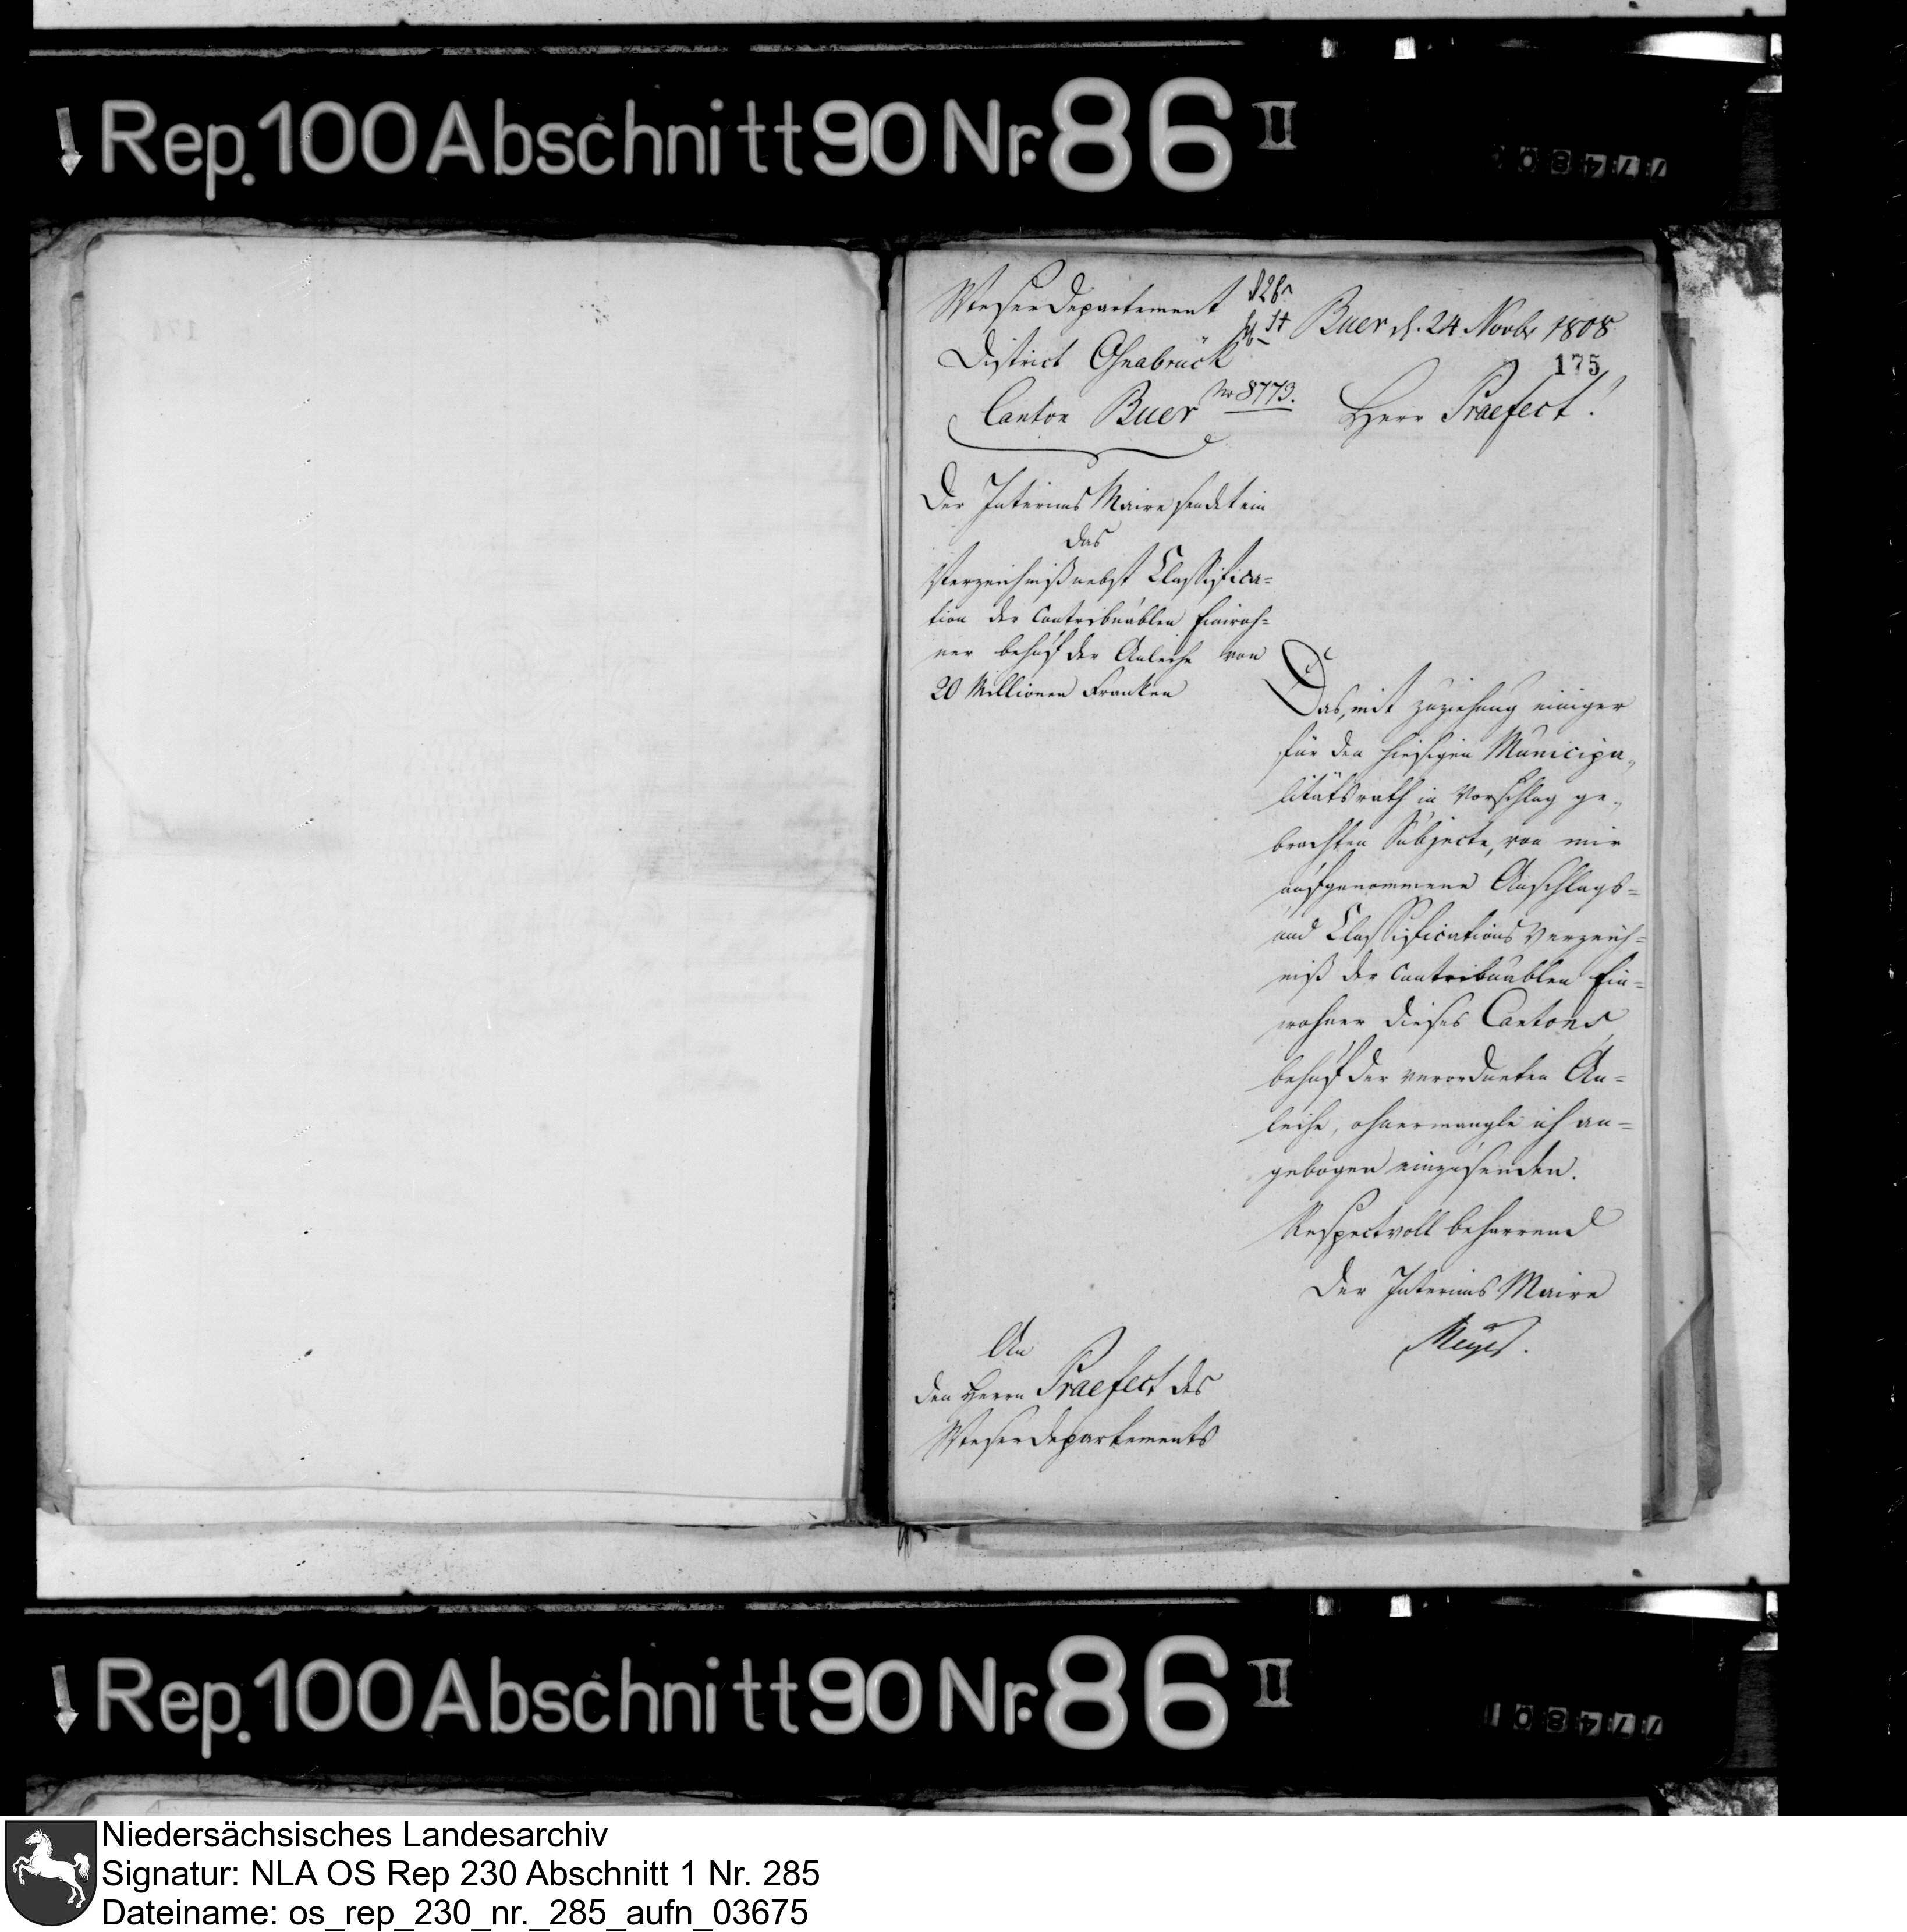 Rep. 100 Abschnitt 90 Nr. 86 II
Weserdepartement
District Osnabrück
Canton Buer
No 8773.
Buer d. 24 Novbr 1808
175
Herr Praefect!
Der Interims Maire sendet ein
das
Verzeichniß nebst Classifica=
tion der Contribuablen Einwoh=
ner behuf der Anleihe von
20 Millionen Franken
Das, mit zuziehung einiger
für den hiesigen Municipa„
litätsrath in Vorschlag ge„
brachten Subjecte, von mir
aufgenommene Anschlags=
und Classifications Verzeich=
niß der Contribuablen Ein=
wohner dieses Cantons
behuf der verordneten An=
leihe, ohnermangle ich an=
gebogen einzusenden.
Respectvoll beharrend
Der Interims Maire
Meyer.
An
den Herrn Praefect des
Weserdepartements
Rep. 100 Abschnitt 90 Nr. 86 II
Niedersächsisches Landesarchiv
Signatur: NLA OS Rep 230 Abschnitt 1 Nr. 285
Dateiname: os_rep_230_nr._285_aufn_03675